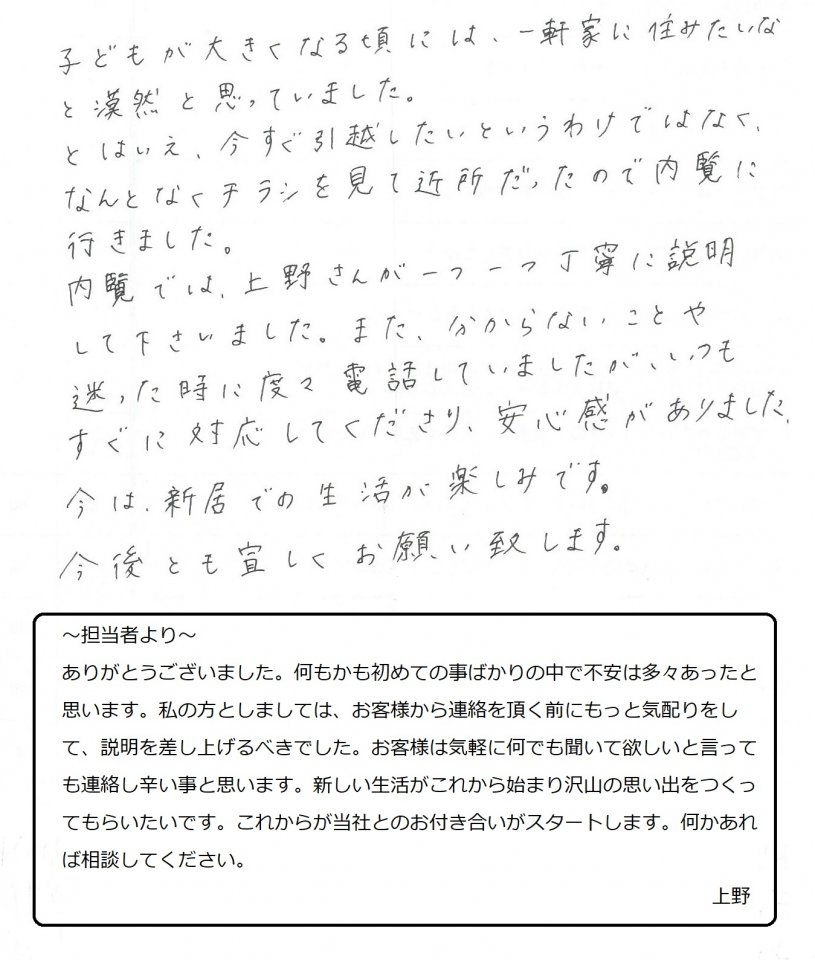 子どもが大きくなる頃には、一軒家に住みたいな
と漠然と思っていました。
とはいえ、今すぐ引越したいというわけではなく、
なんとなくチラシを見て近所だったので内覧に
行きました。
内覧では、上野さんが一つ一つ丁寧に説明
して下さいました。また、分からないことや
迷った時に度々電話していましたが、いつも
すぐに対応してくださり、安心感がありました。
今は、新居での生活が楽しみです。
今後とも宜しくお願い致します。
～担当者より～
ありがとうございました。何もかも初めての事ばかりの中で不安は多々あったと
思います。私の方としましては、お客様から連絡を頂く前にもっと気配りをし
て、説明を差し上げるべきでした。お客様は気軽に何でも聞いて欲しいと言って
も連絡し辛い事と思います。新しい生活がこれから始まり沢山の思い出をつくっ
てもらいたいです。これからが当社とのお付き合いがスタートします。何かあれ
ば相談してください。
上野